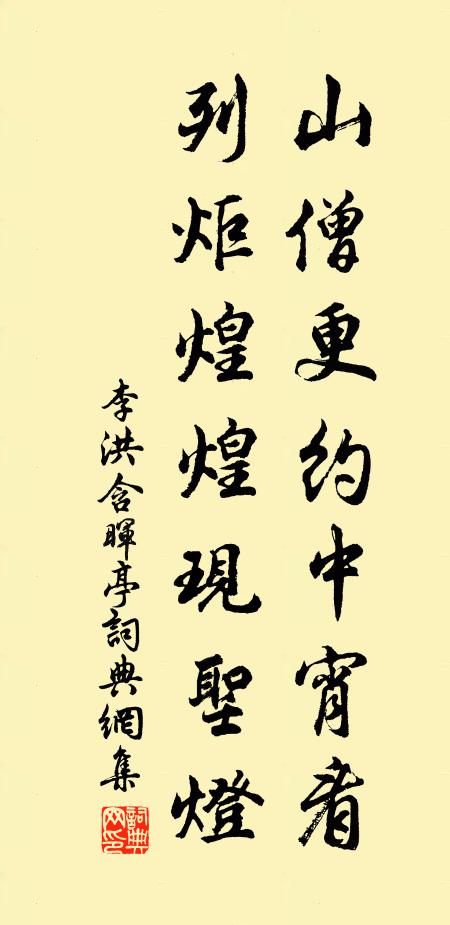 山僧更約中宵看
列炬煌煌現聖燈
李洪含暉亭詞典網集
詞典網印